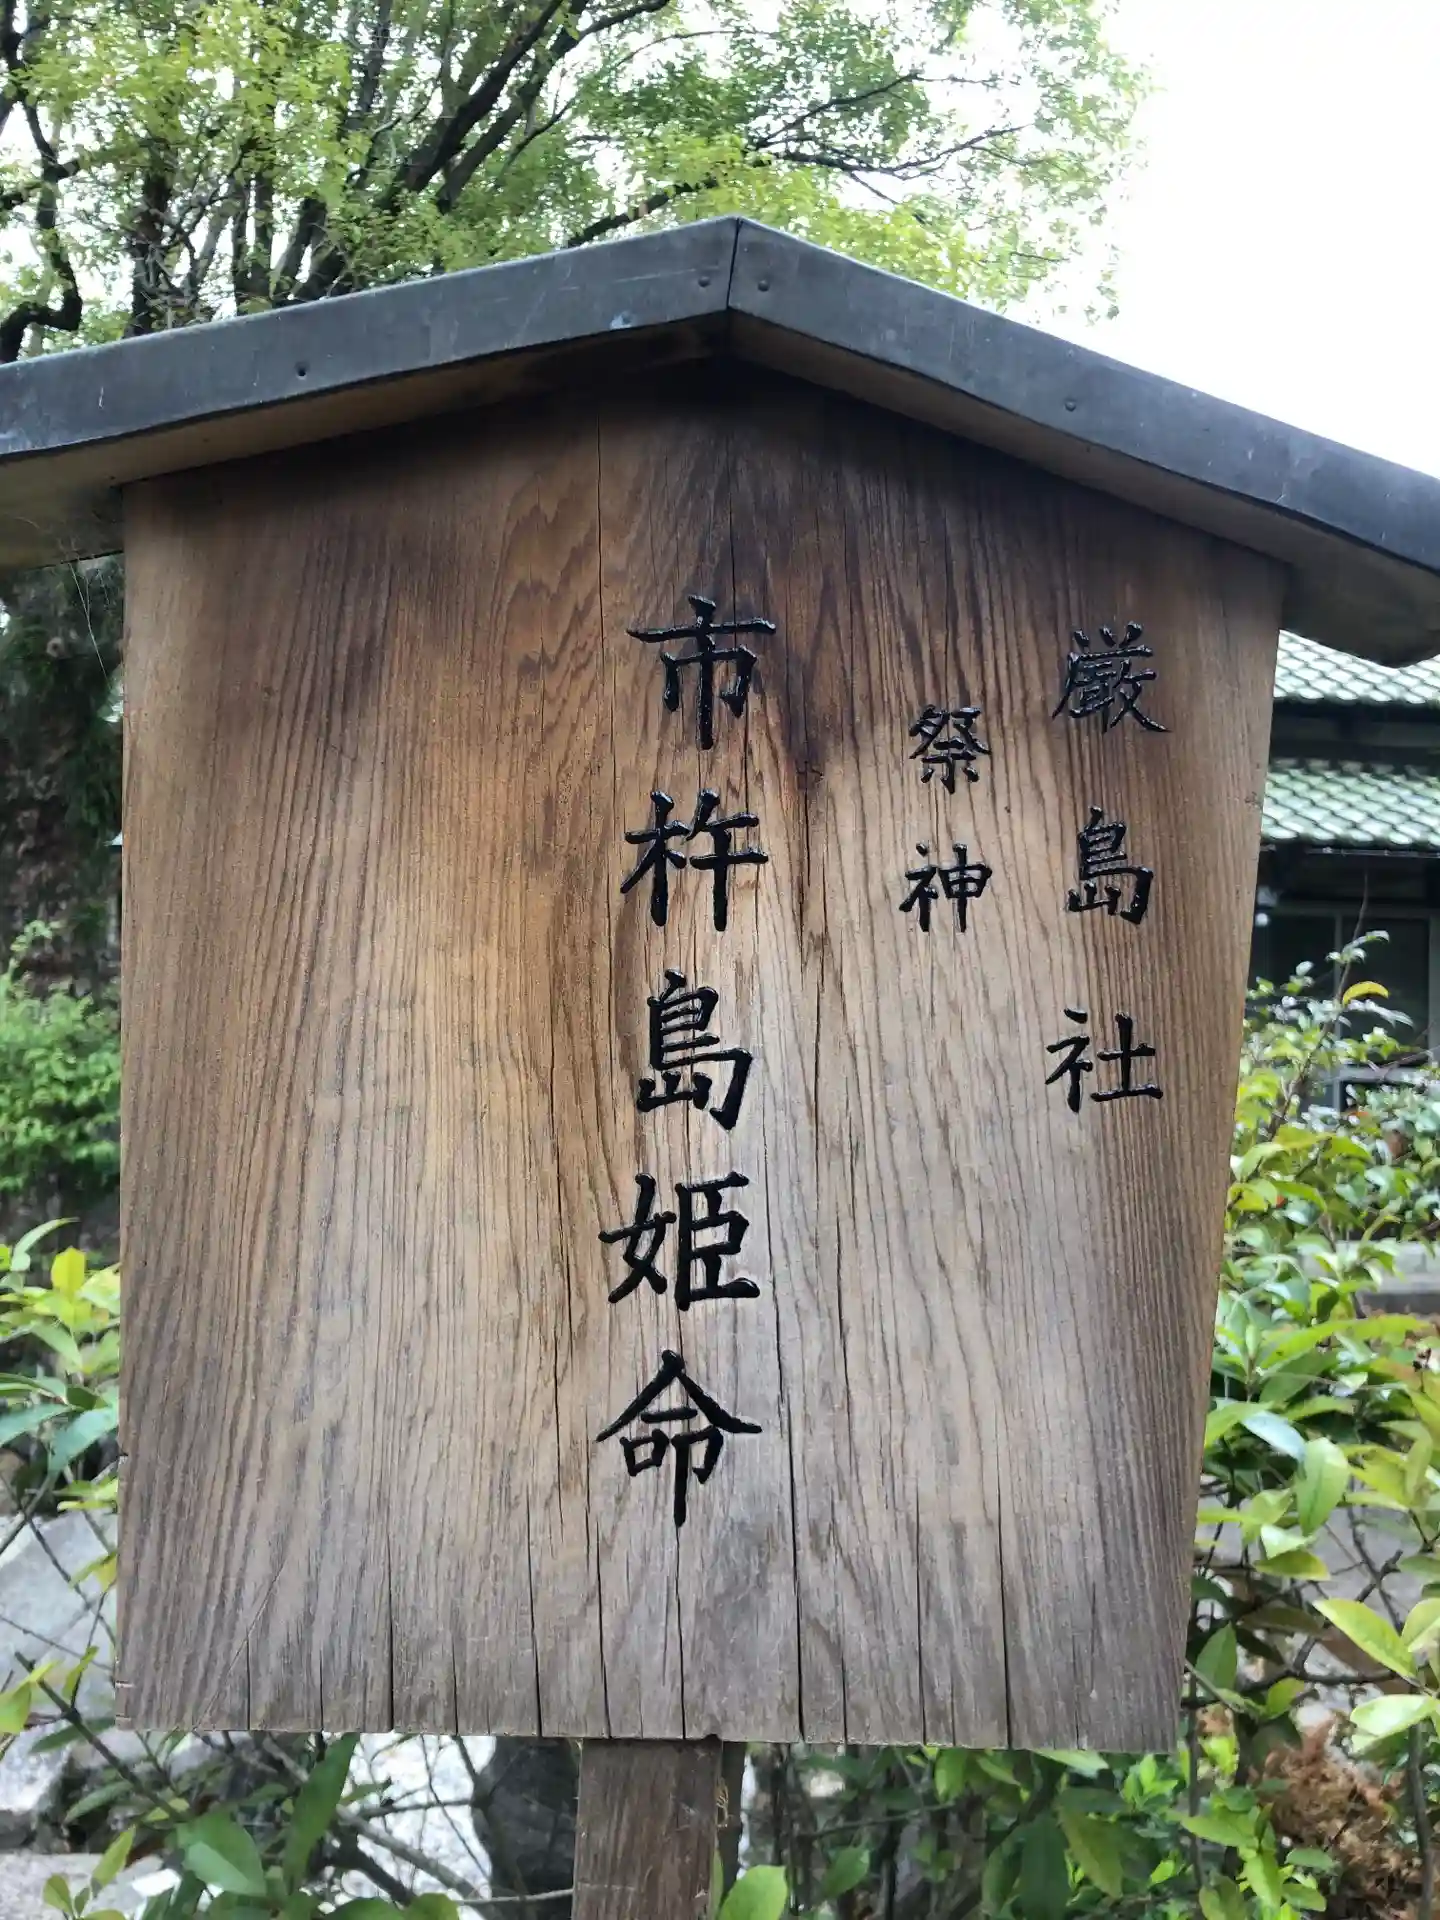 厳島社
祭神
市杵島姫命